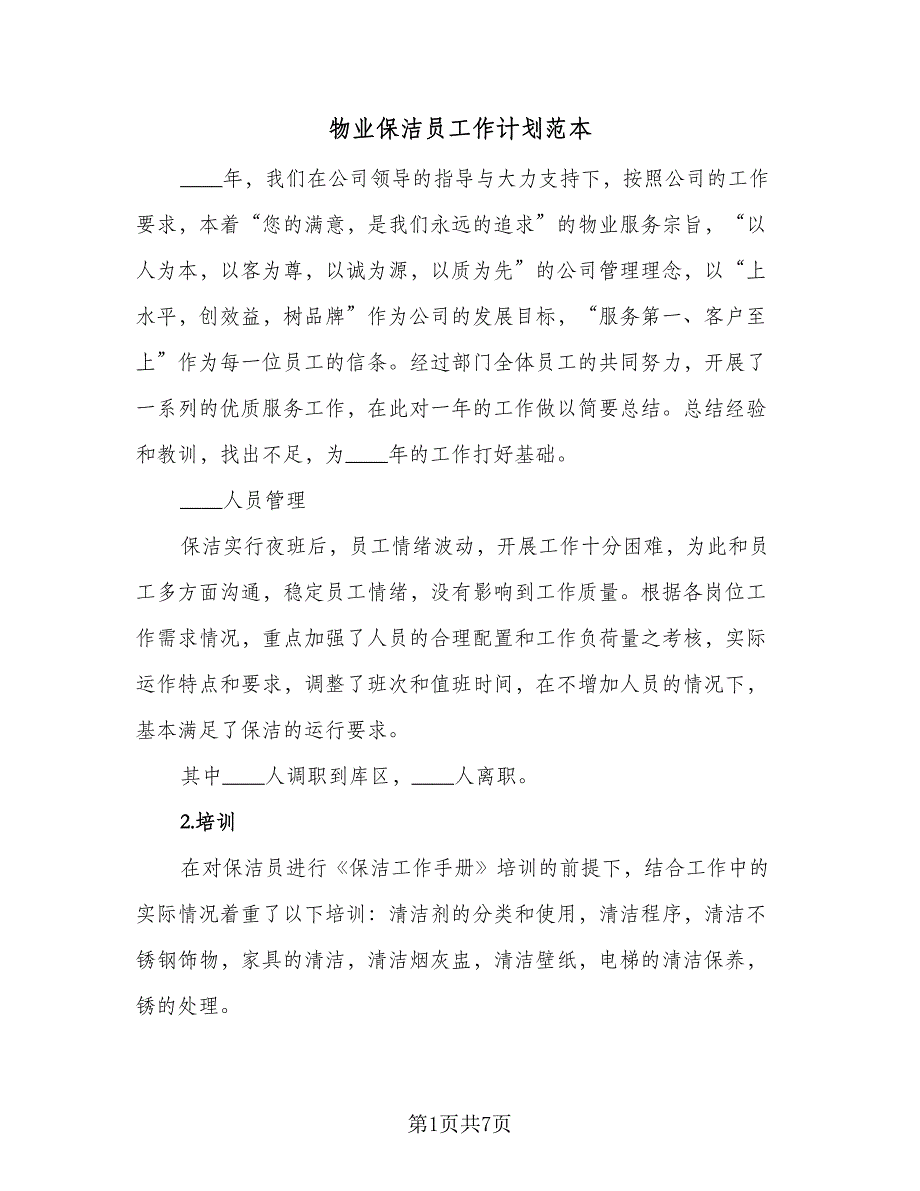 物业保洁员工作计划范本
____年，我们在公司领导的指导与大力支持下，按照公司的工作
要求，本着“您的满意，是我们永远的追求”的物业服务宗旨，“以
人为本，以客为尊，以诚为源，以质为先”的公司管理理念，以“上
水平，创效益，树品牌”作为公司的发展目标，“服务第一、客户至
上”作为每一位员工的信条。经过部门全体员工的共同努力，开展了
一系列的优质服务工作，在此对一年的工作做以简要总结。总结经验
和教训，找出不足，为____年的工作打好基础。
____人员管理
保洁实行夜班后，员工情绪波动，开展工作十分困难，为此和员
工多方面沟通，稳定员工情绪，没有影响到工作质量。根据各岗位工
作需求情况，重点加强了人员的合理配置和工作负荷量之考核，实际
运作特点和要求，调整了班次和值班时间，在不增加人员的情况下，
基本满足了保洁的运行要求。
其中____人调职到库区，____人离职。
2.培训
在对保洁员进行《保洁工作手册》培训的前提下，结合工作中的
实际情况着重了以下培训：清洁剂的分类和使用，清洁程序，清洁不
锈钢饰物，家具的清洁，清洁烟灰盅，清洁壁纸，电梯的清洁保养，
锈的处理。
第1页共7页